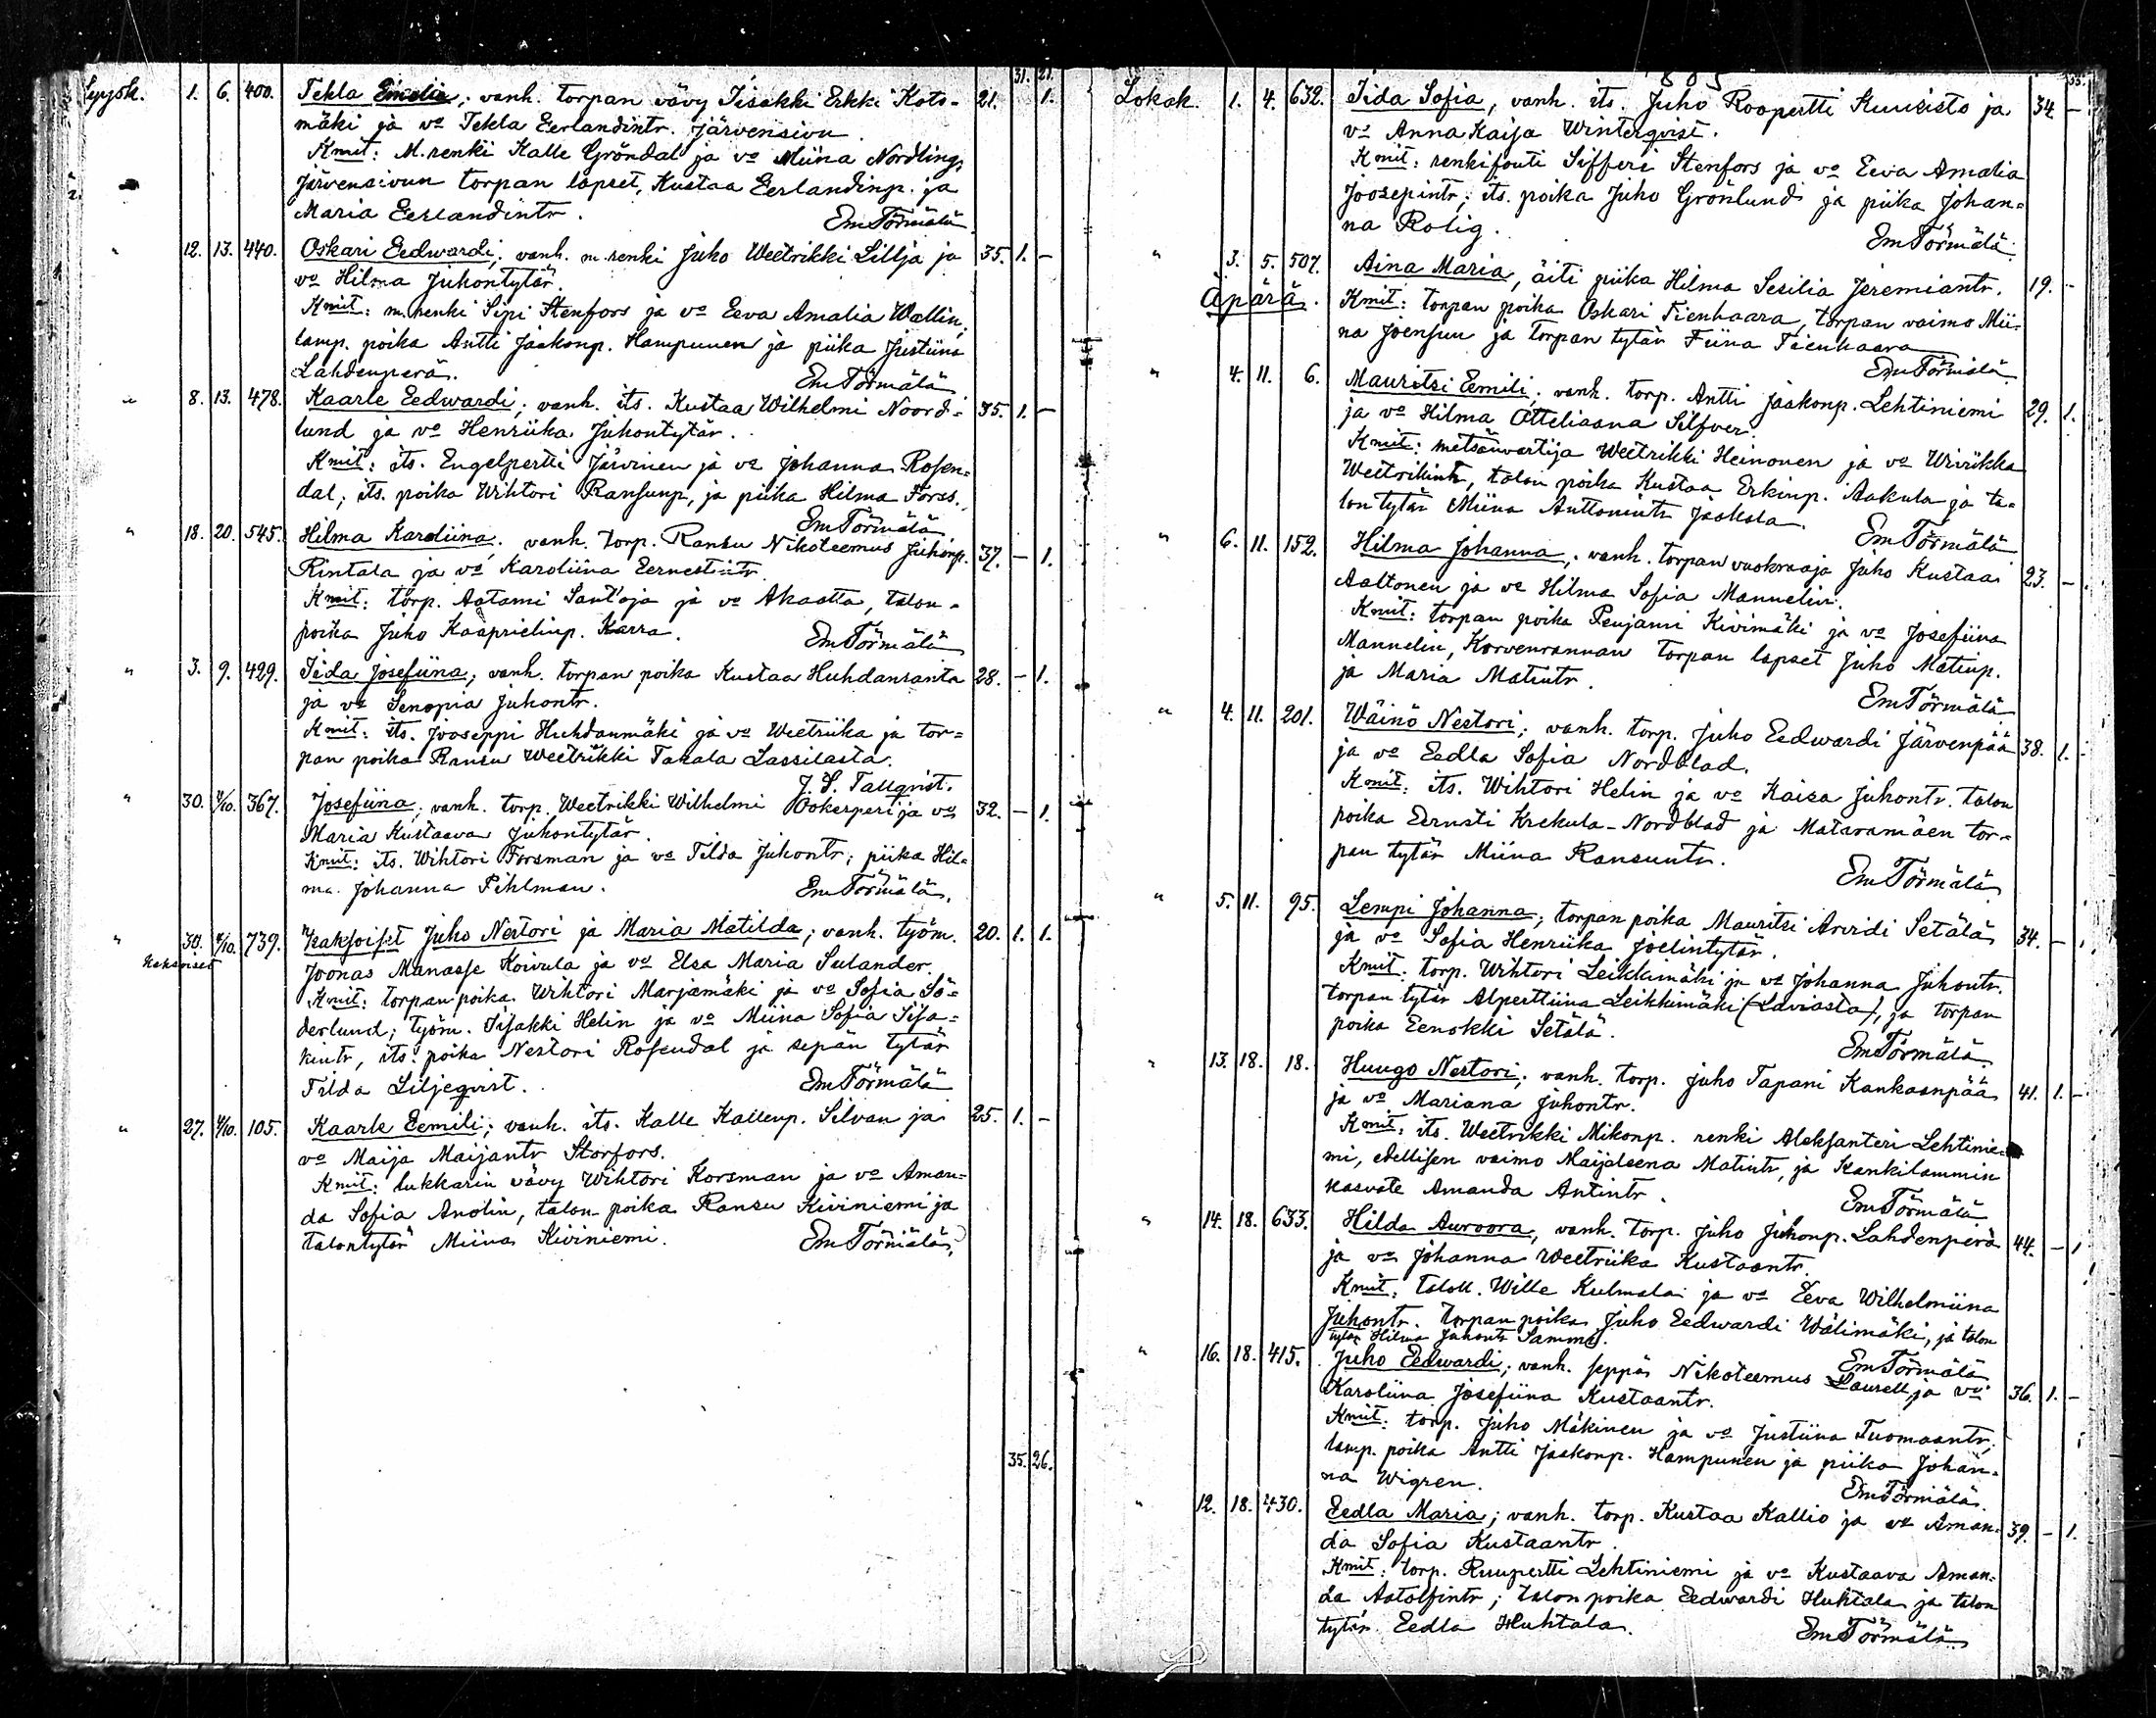 31. 21.
Syysk. 1. 6. 400. Tekla Emelia; vanh. torpan vävy Iisakki Erkki Koto- 21. 1.
mäki ja vo Tekla Eerlandintr. Järvensivu.
Kmit: M.renki Kalle Gröndal ja vo Miina Nordling,
Järvensivun torpan lapset, Kustaa Eerlandinp. ja
Maria Eerlandintr. Em Törmälä
" 12. 13. 440. Oskari Eedwardi; vanh. m.renki Juho Weetrikki Lillja ja 35. 1. –
vo Hilma Juhontytär.
Kmit: m.renki Sipi Stenfors ja vo Eeva Amalia Wallin;
lamp. poika Antti Jaakonp. Hampunen ja piika Justiina
Lahdenperä. Em Törmälä
" 8. 13. 478. Kaarle Eedwardi; vanh. its. Kustaa Wilhelmi Noord- 35. 1. –
lund ja vo Henriika Juhontytär.
Kmit: its. Engelpertti Järvinen ja vo Johanna Rosen=
dal; its. poika Wihtori Ransunp, ja piika Hilma Forss.
Em Törmälä
" 18. 20. 545. Hilma Karoliina; vanh. torp. Ransu Nikoteemus Juhonp. 37. – 1.
Rintala ja vo Karoliina Eernestintr.
Kmit: torp. Aatami Sant'oja ja vo Akaatta, talon-
poika Juho Kaaprielinp. Karra. Em Törmälä
" 3. 9. 429. Iida Josefiina; vanh. torpan poika Kustaa Huhdanranta 28. – 1.
ja vo Senopia Juhontr.
Kmit: its. Jooseppi Huhdanmäki ja vo Weetriika ja tor=
pan poika Ransu Weetrikki Takala Lassilasta.
J. S. Tallqvist.
" 30. 4/10. 367. Josefiina; vanh. torp. Weetrikki Wilhelmi Ookerperi ja vo 32. – 1.
Maria Kustaava Juhontytär.
Kmit: its. Wihtori Forsman ja vo Tilda Juhontr; piika Hil=
ma Johanna Pihlman. Em Törmälä.
" 30. 4/10. 739. Kaksoiset Juho Nestori ja Maria Matilda; vanh. työm. 20. 1. 1.
Kaksoiset
Joonas Manasse Koivula ja vo Elsa Maria Sulander.
Kmit: torpan poika Wihtori Marjamäki ja vo Sofia Sö=
derlund; työm. Iisakki Helin ja vo Miina Sofia Iisa=
kintr, its. poika Nestori Rosendal ja sepän tytär
Tilda Liljeqvist. Em Törmälä
" 27. 4/10. 105. Kaarle Eemili; vanh. its. Kalle Kallenp. Silvan ja 25. 1. –
vo Maija Maijantr Storfors.
Kmit: lukkarin vävy Wihtori Korsman ja vo Aman=
da Sofia Anolin, talon poika Ransu Kiviniemi ja
talontytär Miina Kiviniemi. Em Törmälä
35. 26.
Lokak. 1. 4. 632. Iida Sofia, vanh. its. Juho Roopertti Kuusisto ja 34. –
vo Anna Kaisa Winterqvist.
Kmit: renkifouti Sifferi Stenfors ja vo Eeva Amalia
Joosepintr; its. poika Juho Grönlund ja piika Johan=
na Rolig. Em Törmälä
" 3. 5. 507. Aina Maria, äiti piika Hilma Sesilia Jeremiantr. 19. –
Äpärä. Kmit: torpan poika Oskari Tienhaara, torpan vaimo Mii-
na Joensuu ja torpan tytär Fiina Tienhaara
Em Törmälä
" 4. 11. 6. Mauritsi Eemili; vanh. torp. Antti Jaakonp. Lehtiniemi 29. 1.
ja vo Hilma Otteliaana Silfver.
Kmit: metsänvartija Weetrikki Heinonen ja vo Wiviikka
Weetrikintr, talon poika Kustaa Erkinp. Aakula ja ta=
lon tytär Miina Anttonintr Jaakola. Em Törmälä
" 6. 11. 152. Hilma Johanna; vanh. torpan vuokraaja Juho Kustaa 23. –
Aaltonen ja vo Hilma Sofia Mannelin.
Kmit: torpan poika Penjami Kivimäki ja vo Josefiina
Mannelin, Korvenrannan torpan lapset Juho Matinp.
ja Maria Matintr. Em Törmälä
" 4. 11. 201. Wäinö Nestori; vanh. torp. Juho Eedwardi Järvenpää 38. 1. –
ja vo Eedla Sofia Nordblad.
Kmit: its. Wihtori Helin ja vo Kaisa Juhontr. talon
poika Eernsti Krekula-Nordblad ja Mataramäen tor=
pan tytär Miina Ransuntr.
Em Törmälä
" 5. 11. 95. Lempi Johanna; torpan poika Mauritsi Arvidi Setälä 34. –
ja vo Sofia Henriika Joelintytär.
Kmit: torp. Wihtori Leikkimäki ja vo Johanna Juhontr.
torpan tytär Alperttiina Leikkimäki (Laviasta), ja torpan
poika Eenokki Setälä. Em Törmälä
" 13. 18. 18. Huugo Nestori; vanh. torp. Juho Tapani Kankaanpää 41. 1. –
ja vo Mariana Juhontr.
Kmit: its. Weetrikki Mikonp. renki Aleksanteri Lehtinie-
mi, edellisen vaimo Maijaleena Matintr, ja Kankilammin
kasvate Amanda Antintr. Em Törmälä
" 14. 18. 633. Hilda Auroora, vanh. torp. Juho Juhonp. Lahdenperä 44. – 1
ja vo Johanna Weetriika Kustaantr.
Kmit: talok. Wille Kulmala ja vo Eeva Wilhelmiina
Juhontr. torpan poika Juho Eedwardi Wälimäki, ja talon
tytär Hilma Juhontr Sammi. Em Törmälä
" 16. 18. 415. Juho Eedwardi; vanh. seppä Nikoteemus Laurell, ja vo 36. 1. –
Karoliina Josefiina Kustaantr.
Kmit: torp. Juho Mäkinen ja vo Justiina Tuomaantr;
lamp. poika Antti Jaakonp. Hampunen ja piika Johan=
na Wigren. Em Törmälä.
" 12. 18. 430. Eedla Maria; vanh. torp. Kustaa Kallio ja vo Aman= 39. – 1.
da Sofia Kustaantr.
Kmit: torp. Ruupertti Lehtiniemi ja vo Kustaava Aman=
da Aatolfintr; talon poika Eedwardi Huhtala ja talon
tytär Eedla Huhtala. Em Törmälä